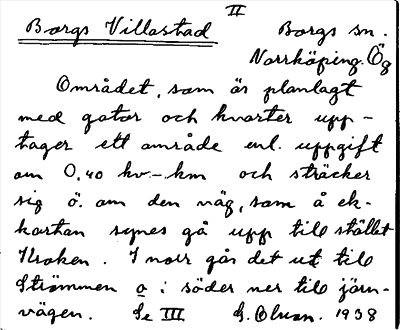 II
Borgs Villastad Borgs sn.
Norrköping. Ög
Området, som är planlagt
med gator och kvarter upp-
tager ett område enl. uppgift
om 0,40 kv.-km och sträcker
sig ö. om den väg, som å ek-
kartan synes gå upp till stället
Kroken. I norr går det ut till
Strömmen o i söder ner till järn-
vägen. Se III 1938